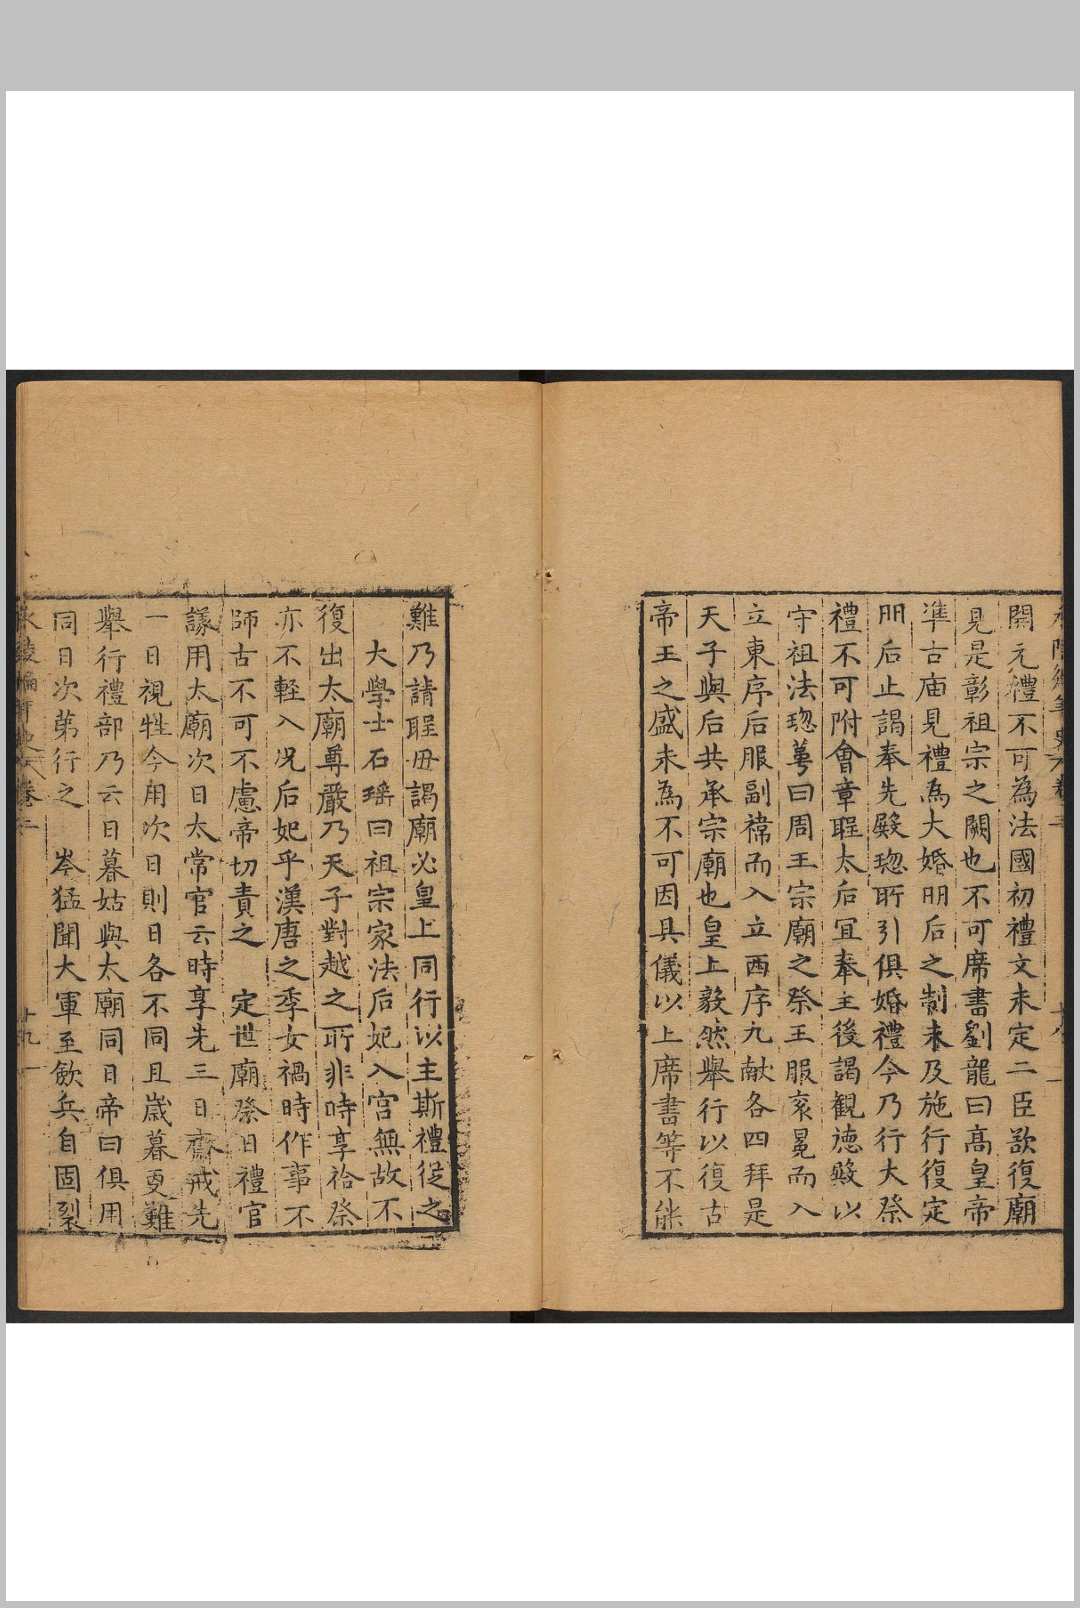 開元禮不可為法國初禮文未定二臣歆復廟
見是彰祖宗之闕也不可席書劉龍曰高皇帝
凖古庙見禮為大婚明后之制未及施行復定
朙后止謁奉先殿璁所引俱婚禮今乃行大祭
禮不可附會章聖太后冝奉主後謁観徳殿以
守祖法璁萼曰周王宗廟之祭王服衮冕而入
立東序后服副褘而入立西序九献各四拜是
天子與后共承宗廟也皇上毅然舉行以復古
帝王之盛未為不可因具儀以上席書等不能
難乃請聖毋謁廟必皇上同行以主斯禮從之
大學士石瑶曰祖宗家法后妃入宫無故不
復出太廟尊嚴乃天子對越之所非時享祫祭
亦不輕入况后妃乎漢唐之季女禍時作事不
師古不可不慮帝切責之 定世廟祭日禮官
議用太廟次日太常官云時享先三日齋戒先
一日視牲今用次日則日各不同且歳暮更難
舉行禮部乃云日暮姑與太廟同日帝曰俱用
同日次苐行之 岑猛聞大軍至歛兵自固裂
永陵編年史 卷二 十九